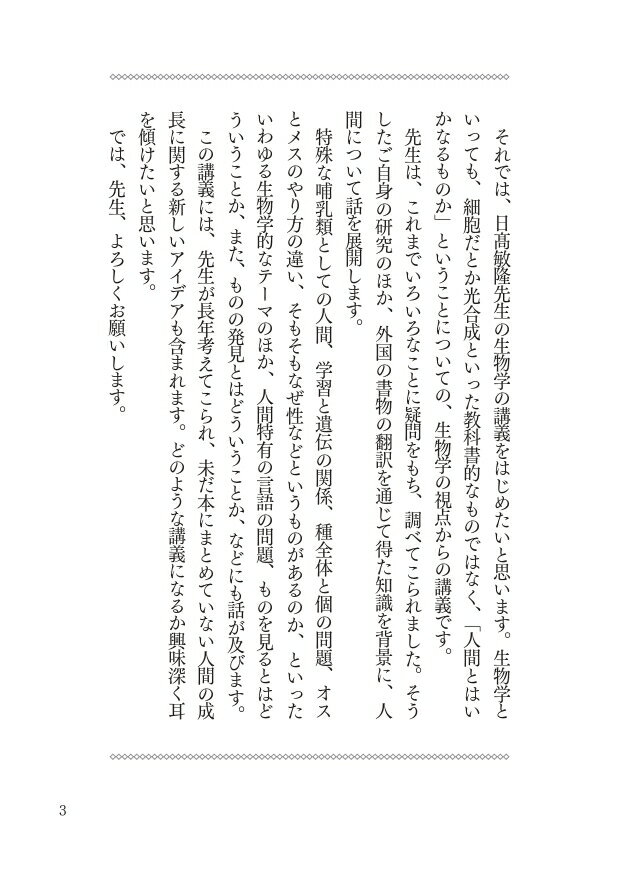 それでは、日髙敏隆先生の生物学の講義をはじめたいと思います。生物学と
いっても、細胞だとか光合成といった教科書的なものではなく、「人間とはい
かなるものか」ということについての、生物学の視点からの講義です。
先生は、これまでいろいろなことに疑問をもち、調べてこられました。そう
したご自身の研究のほか、外国の書物の翻訳を通じて得た知識を背景に、人
間について話を展開します。
特殊な哺乳類としての人間、学習と遺伝の関係、種全体と個の問題、オス
とメスのやり方の違い、そもそもなぜ性などというものがあるのか、といった
いわゆる生物学的なテーマのほか、人間特有の言語の問題、ものを見るとはど
ういうことか、また、ものの発見とはどういうことか、などにも話が及びます。
この講義には、先生が長年考えてこられ、未だ本にまとめていない人間の成
長に関する新しいアイデアも含まれます。どのような講義になるか興味深く耳
を傾けたいと思います。
では、先生、よろしくお願いします。
3